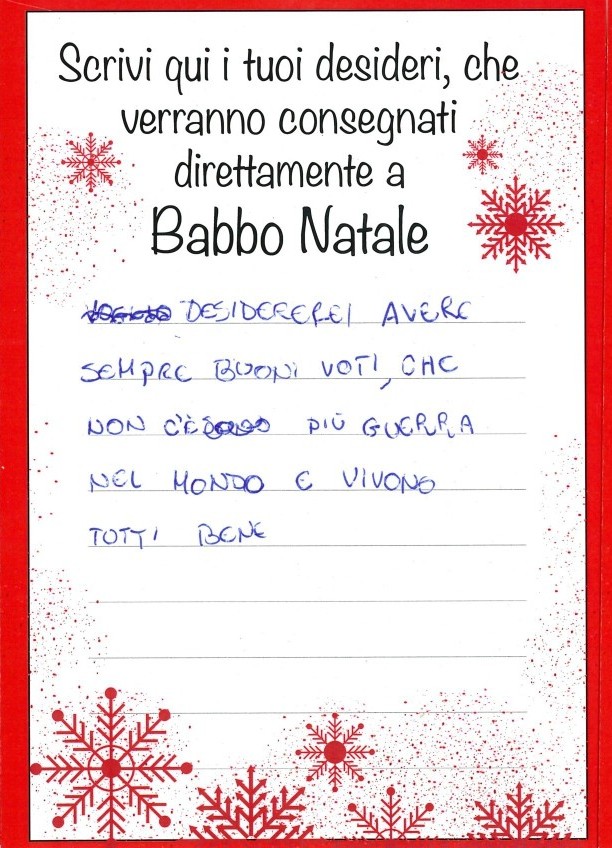 Scrivi qui i tuoi desideri, che
verranno consegnati
direttamente a
Babbo Natale
DESIDEREREI AVERE
SEMPRE BUONI VOTI, CHE
NON C'È PIÙ GUERRA
NEL MONDO E VIVONO
TUTTI BENE